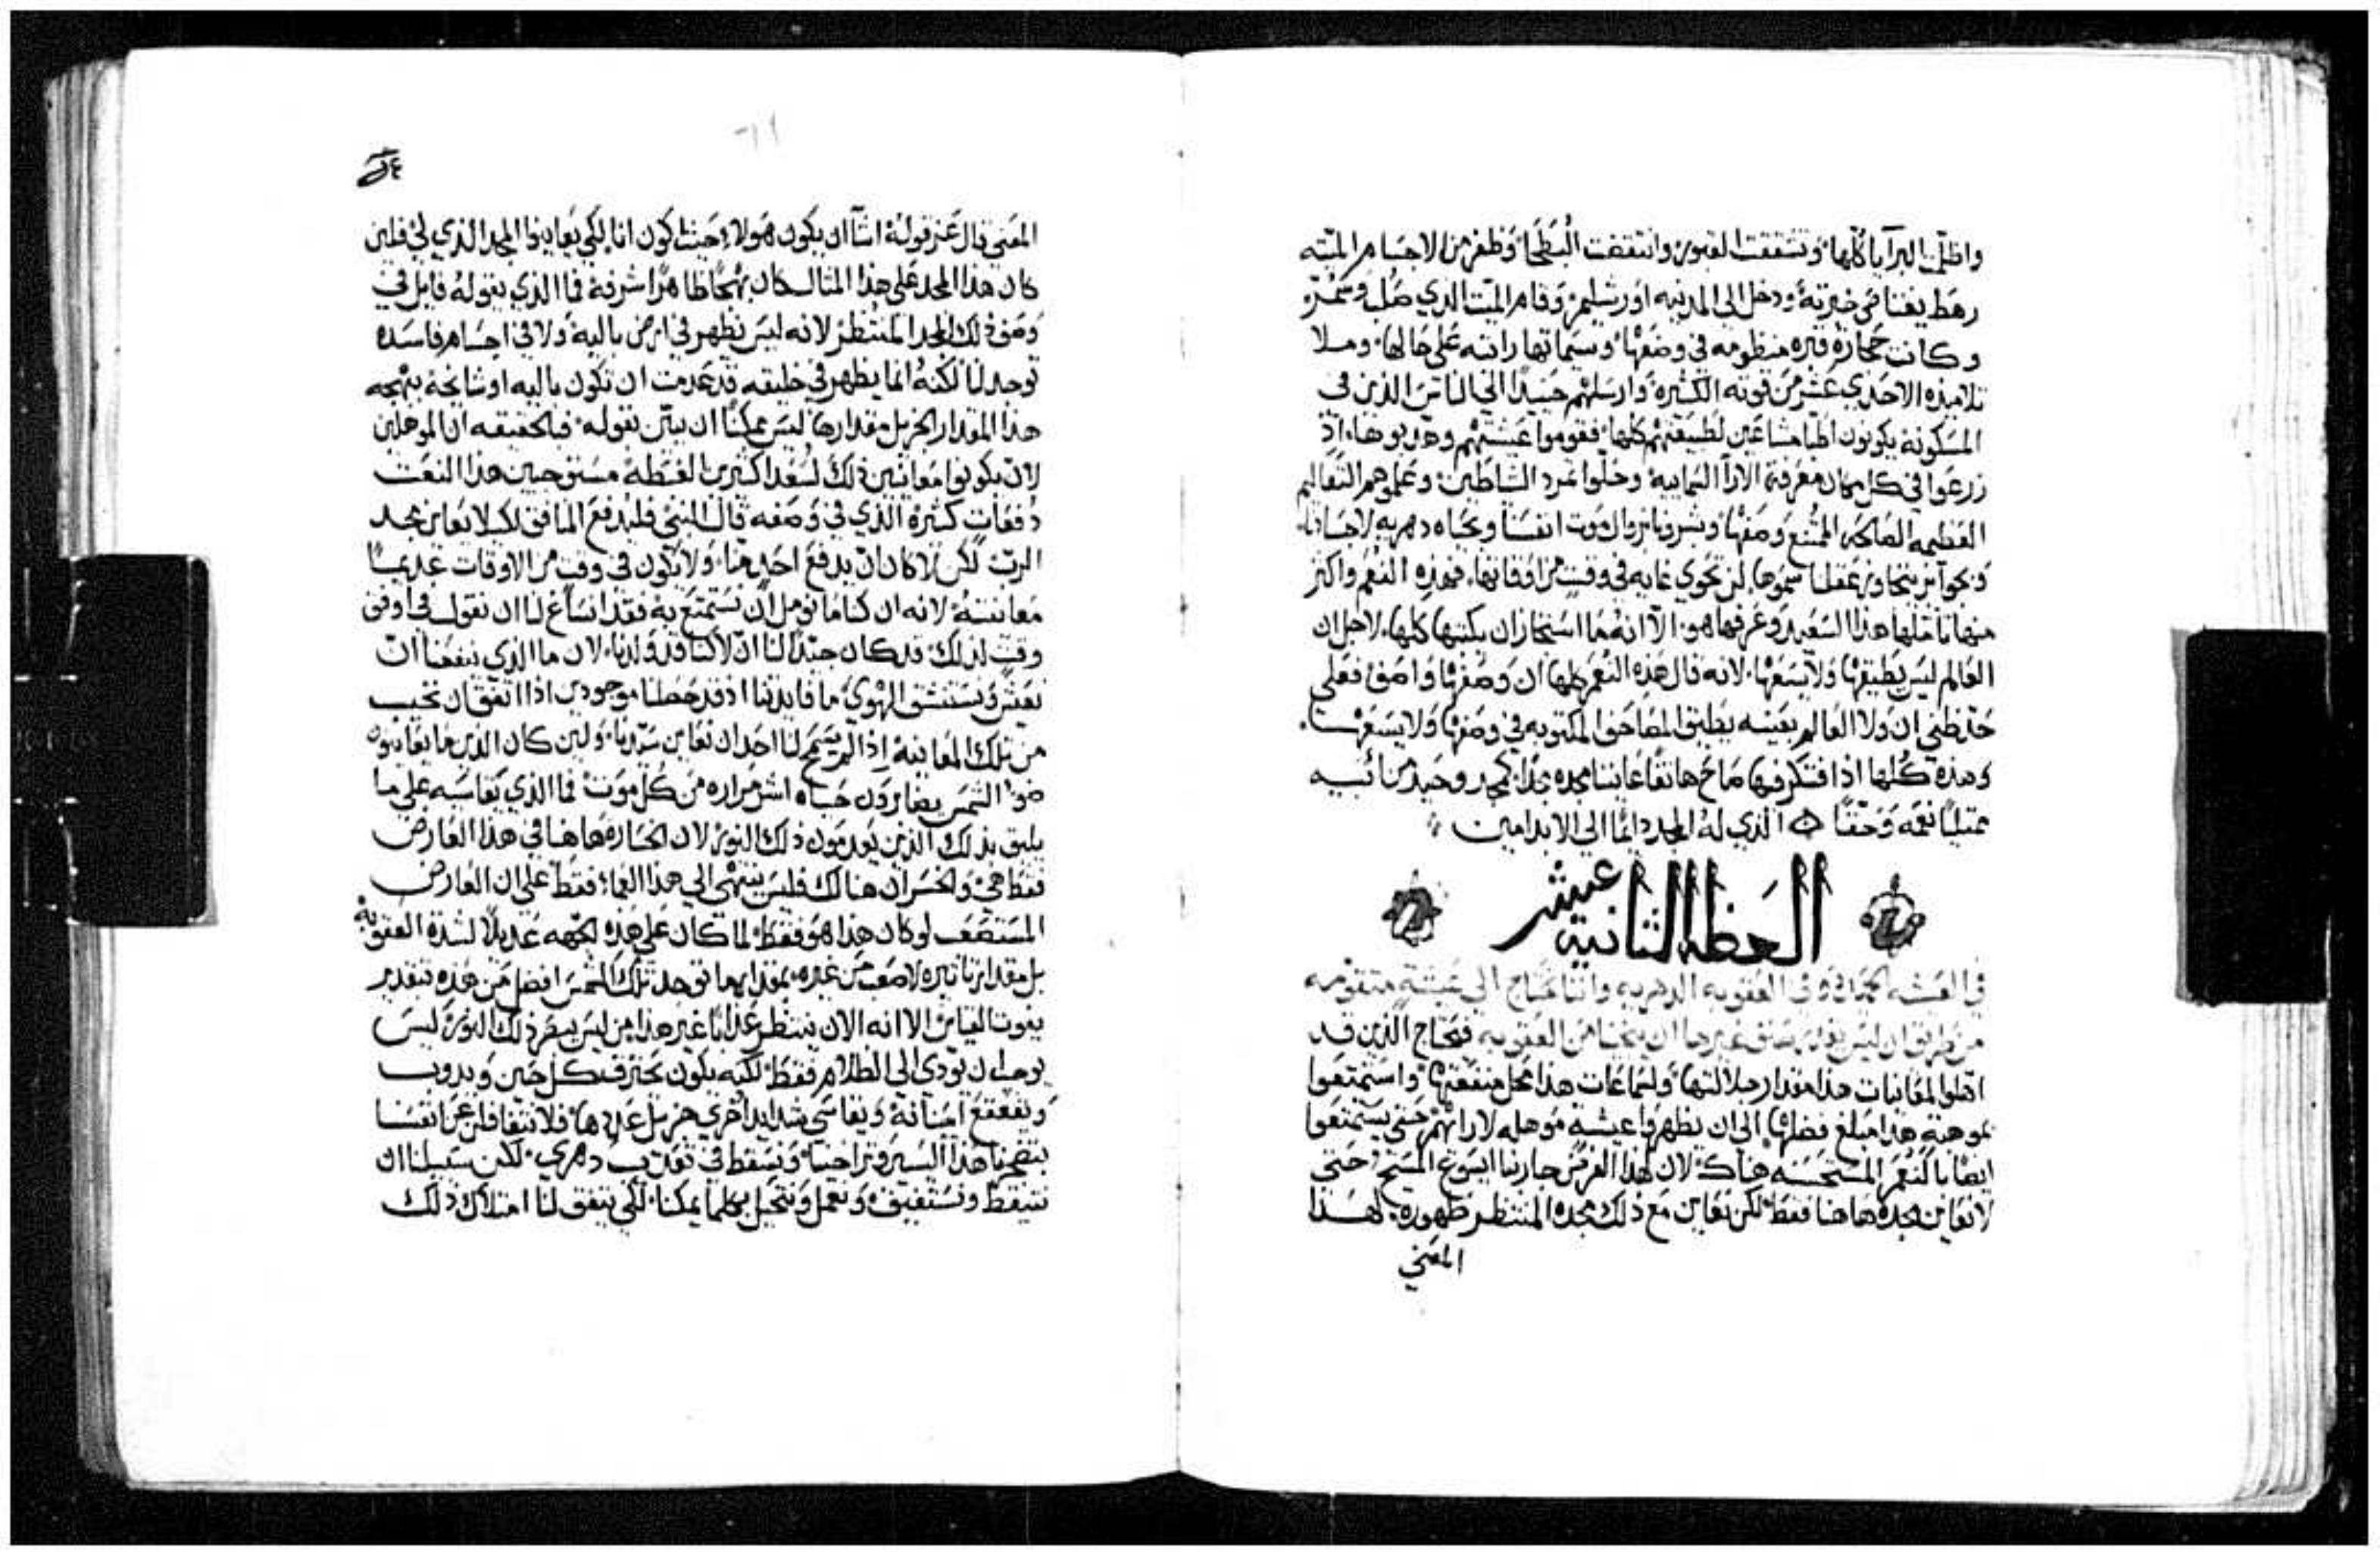 واظلمت البرآيا كلها وتشققت القبور وانتقضت البطحا وظفر من الاجسام الميته
رهط يغتا في خبرته ودخل الى المدينه اورشليم وقام الميت الذي صلب وسمر
وكانت حجارة قبره منظومه في وضعها وسيماتها راتبه على حالها وملا
تلاميذه الاحدي عشر من قوته الكثيره وارسلهم حينيذ الى الناس الذين في
المسكونه يكونون اطبا مشاعين لطبيعتهم كلها فقوموا عيشتهم وهذبوها اذ
زرعوا في كل مكان معرفة الارآ السماييه وحلوا تمرد الشياطين وعلموهم التعاليم
العظيمه الصالحه الممتنع وصفها وبشرونا بزوال موت انفسنا وبحياه دهريه لاجسادنا
وبجوآيز يتجاوز عقلنا سموها لن تحوي غايه في وقت من اوقاتها فهذه النعم واكثر
منها تاملها هذا السعيد وعرفها هو الا انه ما استجاز ان يكتبها كلها لاجل ان
العالم ليس يطيقها ولا يسعها لانه قال هذه النعم كلها ان وصفها واصف فعلى
حد ظني ان ولا العالم بعينه يطيق المصاحف المكتوبه في وصفها ولا يسعها
وهذه كلها اذا افتكر فيها صاح هاتفا عاينا مجده مجدا كمجد وحيد من ابيه
ممتليا نعمه وحقا الذي له المجد دايما الى الابد امين
العظه الثانية عشر
في العيشه وفي العقوبه الدهريه واننا نحتاج الى عيشة متقومه
من طريق ان ليس يقدر شي غيرها ان ينجينا من العقوبه فيحتاج الذين قد
اهلوا لمعاينات هذا مقدار جلالتها ولسماعات هذا محل منفعتها واستمتعوا
بموهبة هذا مبلغ فضلها الى ان يظهروا عيشة موهله لارائهم حتى يستمتعوا
ايضا بالنعم المستحسنه هناك لان لهذا الغرض جا ربنا ايسوع المسيح حتى
لا نعاين مجده هاهنا فقط لكن نعاين مع ذلك مجده المنتظر ظهوره لهذا
المعني
المعني قال عند قوله اشآ ان يكون هولا بحيث اكون انا لكي يعاينوا المجد الذي لي فلين
كان هذا المجد على هذا المثال كان بهجا ظاهرا شرفه فما الذي يقوله قايل في
وصف ذلك المجد المنتظر لانه ليس يظهر في ارض باليه ولا في اجسام فاسده
توجد لنا لكنه انما يظهر في خليقه قد عدمت ان تكون باليه او شايخه ببهجه
هذا المقدار الجزيل مقدارها ليس ممكنا ان يبين بقوله فبالحقيقه ان الموهلين
لان يكونوا معاينين ذلك لسعدا كثيري الغبطه مستوجبين هذا النعت
دفعات كثيره الذي في وصفه قال النبي فليدفع المنافق لكيلا يعاين مجد
الرب لكن لا كان ان يدفع احد منا ولا يكون في وقت من الاوقات عديما
معاينته لانه ان كنا ما نومل ان نستمتع به فقد انساغ لنا ان نقول في اوفق
وقت لذلك قد كان جيدا لنا ان لا كنا قد ولدنا لان ما الذي ينفعنا ان
نعيش ونستنشق الهوي ما فايدتنا اذ قد حصلنا موجودين اذا اتفق ان نخيب
من تلك المعاينه اذا لم يسمح لنا احد ان نعاين سيدنا ولين كان الذين ما يعاينون
ضوا الشمس يصابرون حياه اشر مراره من كل موت فما الذي يقاسيه على ما
يليق بذلك الذين يعدمون ذلك النور لان الخساره هاهنا في هذا العارض
فقط هي والخسران هنالك فليس ينتهي الي هذا العما فقط على ان العارض
المستصعب لو كان هذا هو فقط لما كان على هذه الجهه عديلا لشدة العقوبه
بل مقدار تاثيره لاصعب من غيره بمقدار ما توجد تلك الشمس افضل من هذه بتقدير
يفوت القياس الا انه الان ينتظر عذابا غير هذا من ليس يبصر ذلك النور ليس
يوجب ان يودى الي الظلام فقط لكنه يكون محترقا كل حين ويدوب
ويقعقع اسنانه ويقاسي شدايد اخري جزيل عددها فلا نتغافلن عن انفسنا
بتضجعنا هذا اليسير وتراخينا ونسقط في تعذيب دهري لكن سبيلنا ان
نتيقظ ونستفيق ونعمل ونتحيل بكلما يمكنا لكي يتفق لنا امتلاك ذلك